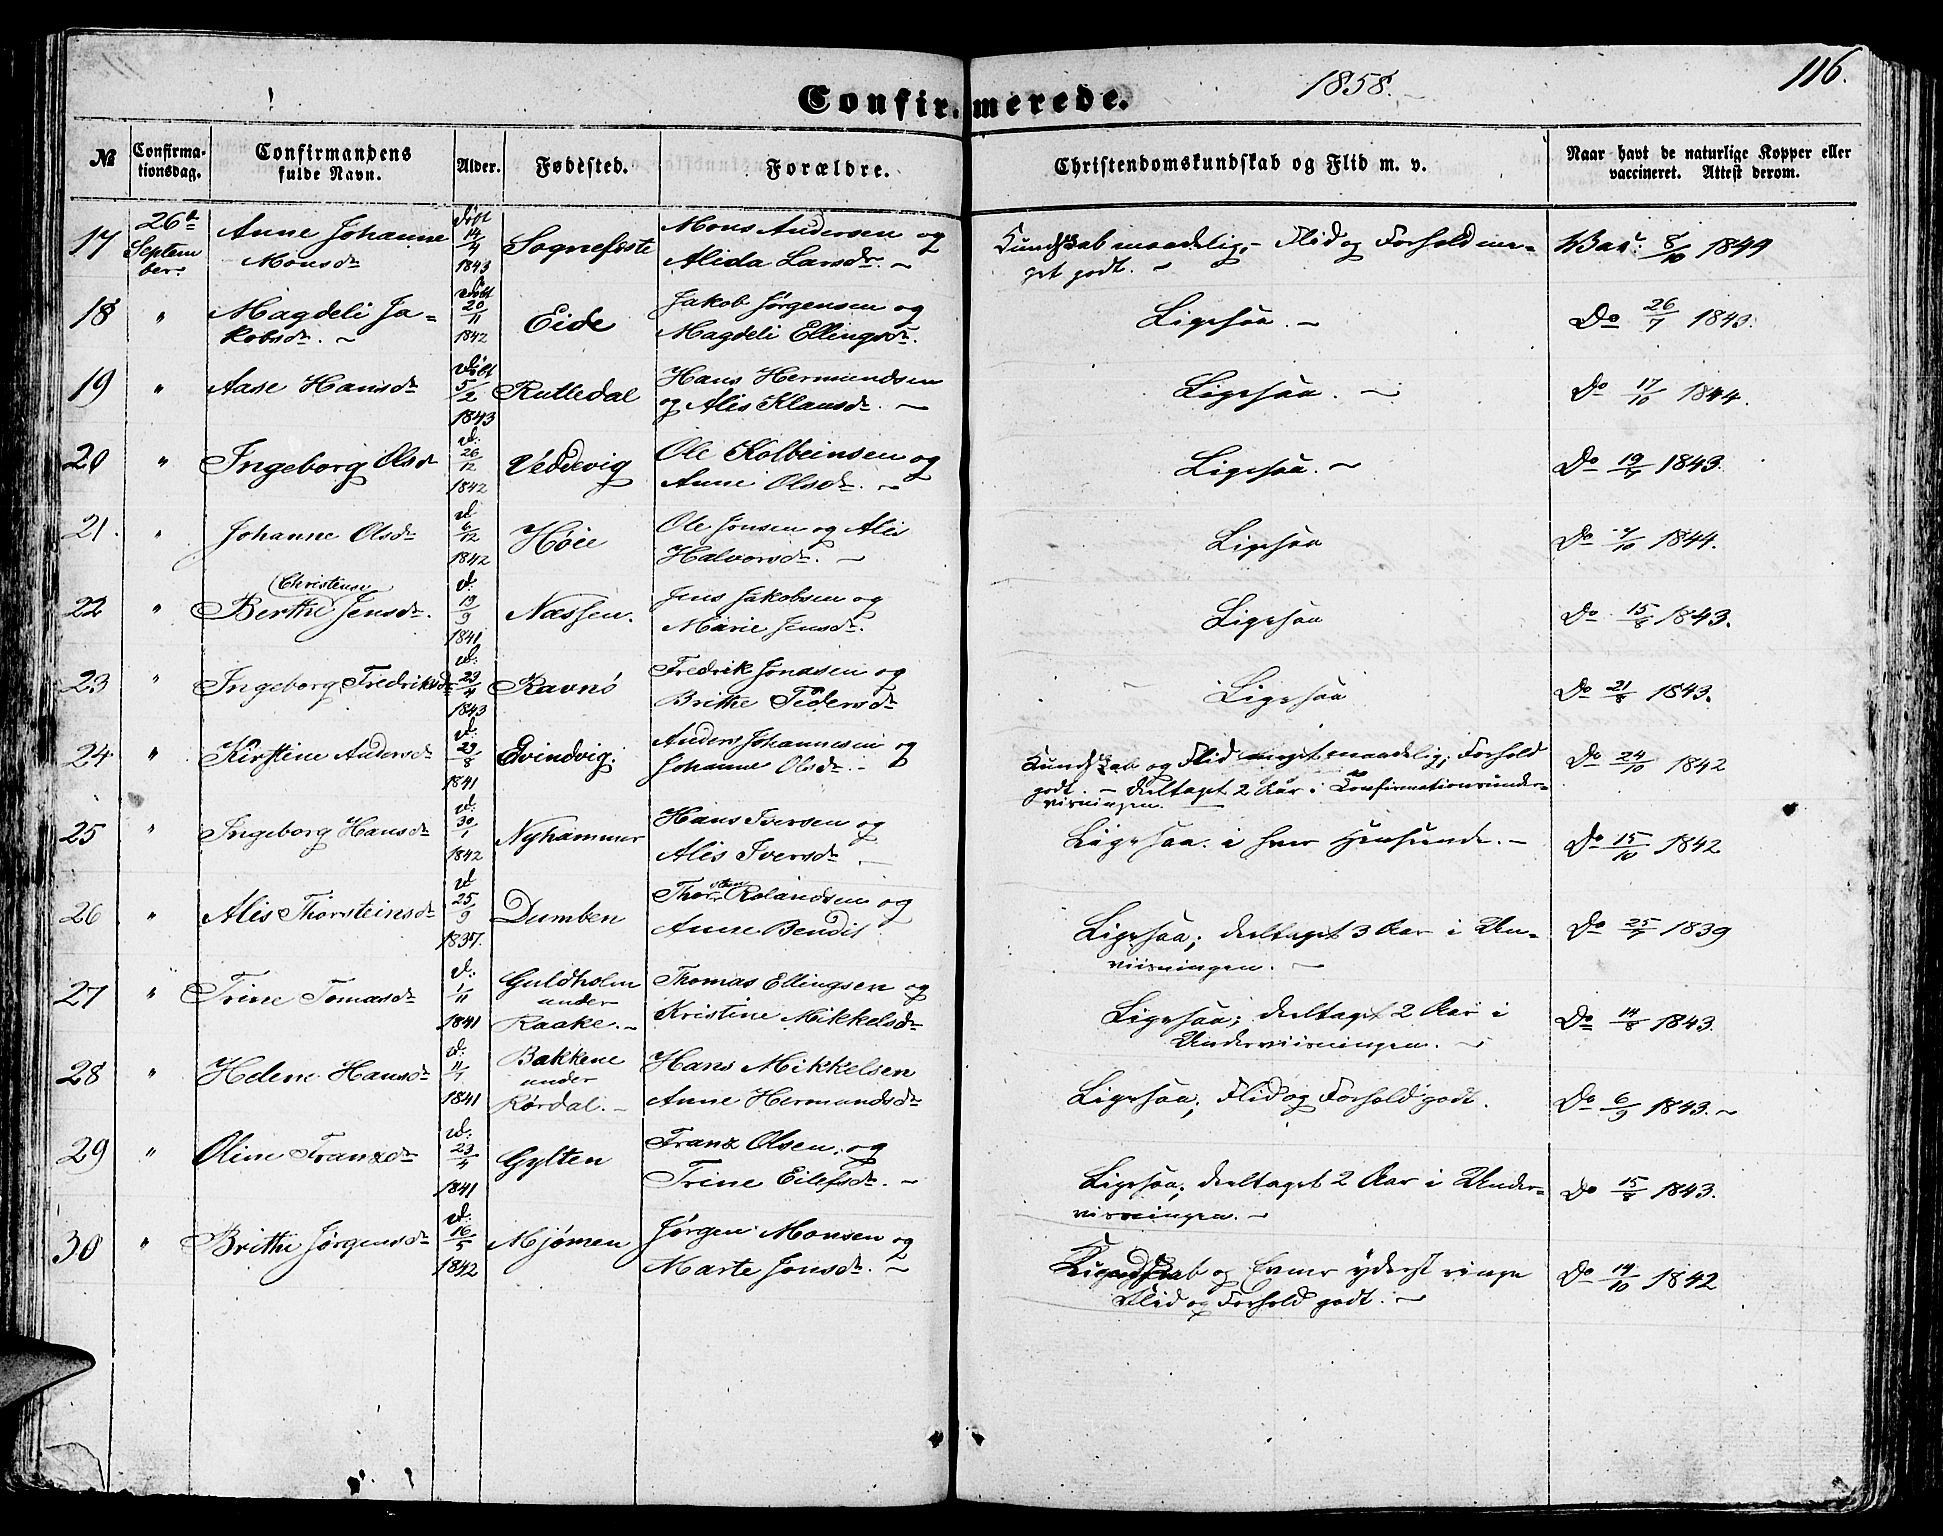 1858.
116.
Confirmerede.
№
Confirma-
tionsdag.
Confirmandens
fulde Navn.
Alder.
Fødested.
Forældre.
Christendomskundskab og Flid m. v.
Naar havt de naturlige Kopper eller
vaccineret. Attest derom.
17
26d
Septem
ber.
Anne Johanne
Monsdr
døbt
14/4
1843
Sognefæste
Mons Andersen og
Alida Larsdr. –
Kundskab maadelig, – Flid og Forhold me-
get godt. –
Vac: 8/10 1849
18
"
Magdeli Ja-
kobsdr. –
døbt
20/11
1842
Eide
Jakob Jørgensen og
Magdeli Ellingsdr.
Ligesaa. –
Do 26/7 1843.
19
"
Aase Hansdr
døbt
5/2
1843
Rutledal
Hans Hermundsen
og Alis Klausdr. –
Ligesaa. –
Do 17/10 1844.
20
"
Ingeborg Olsdr
d:
26/12
1842
Veddevig
Ole Kolbeinsen og
Anne Olsdr. –
Ligesaa. –
Do 19/9 1843.
21.
"
Johanne Olsdr
d
6/12
1842
Høie
Ole Jonsen og Alis
Halvorsdr. –
Ligesaa
Do 7/10 1844.
22
"
(Christense
Berthe Jensdr.
d:
19/9
1841
Næssen.
Jens Jakobsen og
Marie Jensdr.
Ligesaa
Do 15/8 1843.
23
"
Ingeborg Fredriksdr
d:
23/4
1843
Ravnø
Fredrik Jonasen og
Brithe Pedersdr
Ligesaa
Do 21/8 1843.
24
"
Kirstine Andersdr
d:
29/8
1841
Evindvig.
Anders Johannesen og
Johanne Olsdr. –
Kundskab og Flid meget maadelig, Forhold
godt. – Deeltaget 2 Aar i Confirmationsunder-
visningen.
Do 24/10 1842
25
"
Ingeborg Hansdr
d:
30/1
1842
Nyhammer
Hans Iversen og
Alis Iversdr. –
Ligesaa. i hver Henseende. –
Do 15/10 1842
26
"
Alis Thorsteinsdr
d
25/9
1837.
Dumben
Thorsten Rolandsen og
Anne Bendit
Ligesaa; deeltaget 3 Aar i Un-
viisningen. –
Do 25/7 1839
27
"
Trine Tomasdr
d:
1/11
1841
Guldholm
under
Raake. –
Thomas Ellingsen og
Kristine Mikkelsdr
Ligesaa; deeltaget 2 Aar i
Underviisningen. –
Do 14/8 1843.
28
"
Helene Hansdr
d:
11/7
1841
Bakkene
under
Rørdal. –
Hans Mikkelsen
Anne Hermandsdr
Ligesaa; Flid og Forhold godt.
Do 6/9 1843. –
29
"
Oline Franzdr
d:
23/4
1841
Gylten
Franz Olsen, og
Trine Eilefsdr. –
Ligesaa; deeltaget 2 Aar i Under-
visningen. –
Do 15/8 1843.
30
"
Brithe Jørgensdr
d:
16/5
1842
Mjømen
Jørgen Monsen og
Marte Jonsdr. –
Kundskab og Evner yderst ringe
Flid og Forhold godt. –
Do 14/10 1842